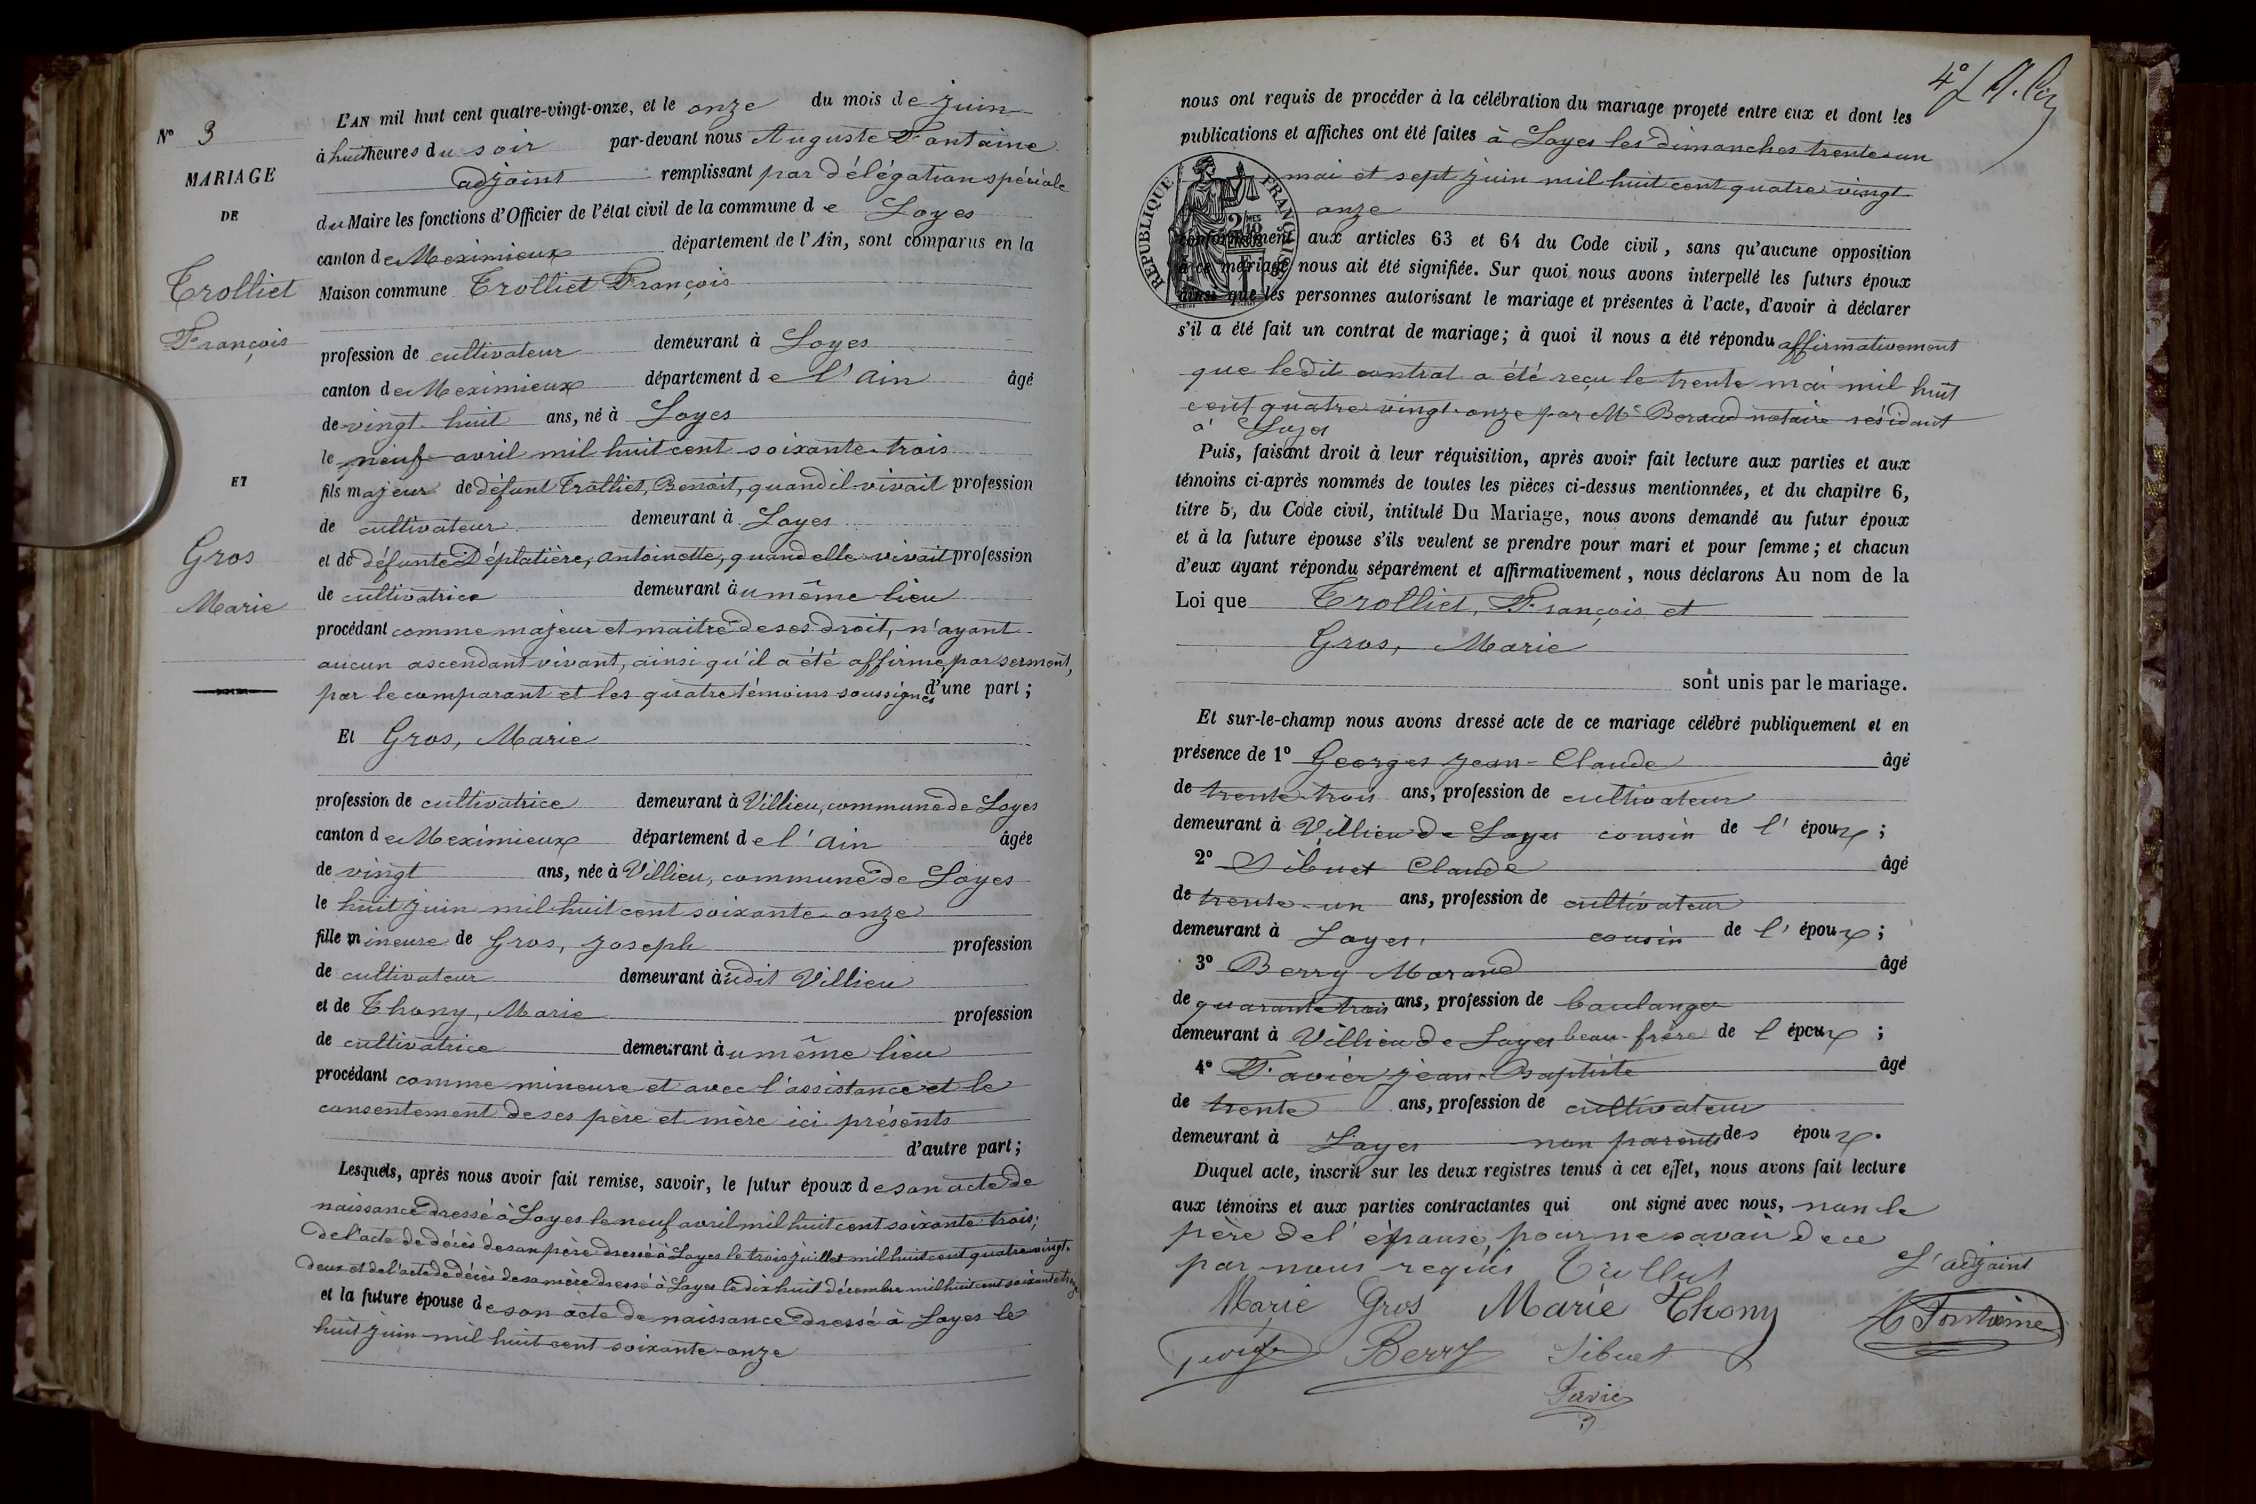 N° 3
MARIAGE
DE
Trolliet
François
ET
Gros
Marie
L'AN mil huit cent quatre-vingt-onze, et le onze du mois de juin
à huit heures du soir par-devant nous Auguste Fontaine
adjoint remplissant par délégation spéciale
du Maire les fonctions d'Officier de l'état civil de la commune de Loyes
canton de Meximieux département de l'Ain, sont comparus en la
Maison commune Trolliet François
profession de cultivateur demeurant à Loyes
canton de Meximieux département de l'Ain âgé
de vingt-huit ans, né à Loyes
le neuf avril mil huit cent soixante-trois
fils majeur de défunt Trolliet, Benoit, quand il vivait profession
de cultivateur demeurant à Loyes
et de défunte Déplatière, Antoinette, quand elle vivait profession
de cultivatrice demeurant au même lieu
procédant comme majeur et maitre de ses droit, n'ayant
aucun ascendant vivant, ainsi qu'il a été affirmé par serment,
par le comparant et les quatre témoins soussignés d'une part ;
Et Gros, Marie
profession de cultivatrice demeurant à Villieu, commune de Loyes
canton de Meximieux département de l'Ain âgée
de vingt ans, née à Villieu, commune de Loyes
le huit juin mil huit cent soixante-onze
fille mineure de Gros, Joseph profession
de cultivateur demeurant àudit Villieu
et de Thony, Marie profession
de cultivatrice demeurant àu même lieu
procédant comme mineure et avec l'assistance et le
consentement de ses père et mère ici présents
d'autre part ;
Lesquels, après nous avoir fait remise, savoir, le futur époux de son acte de
naissance dressé à Loyes le neuf avril mil huit cent soixante-trois ;
de l'acte de décès de son père dressé à Loyes le trois juillet mil huit cent quatre-vingt-
deux et de l'acte de décès de sa mère dressé à Loyes le dix huit décembre mil huit cent soixante
et la future épouse de son acte de naissance dressé à Loyes le
huit juin mil huit cent soixante-onze
4°
nous ont requis de procéder à la célébration du mariage projeté entre eux et dont les
publications et affiches ont été faites à Loyes les dimanches trente-un
mai et sept juin mil huit cent quatre vingt
onze
REPUBLIQUE FRANÇAISE
conformément aux articles 63 et 64 du Code civil, sans qu'aucune opposition
à ce mariage nous ait été signifiée. Sur quoi nous avons interpellé les futurs époux
ainsi que les personnes autorisant le mariage et présentes à l'acte, d'avoir à déclarer
s'il a été fait un contrat de mariage ; à quoi il nous a été répondu affirmativement
que ledit contrat a été reçu le trente mai mil huit
cent quatre-vingt-onze par Me notaire résidant
à Loyes
Puis, faisant droit à leur réquisition, après avoir fait lecture aux parties et aux
témoins ci-après nommés de toutes les pièces ci-dessus mentionnées, et du chapitre 6,
titre 5, du Code civil, intitulé Du Mariage, nous avons demandé au futur époux
et à la future épouse s'ils veulent se prendre pour mari et pour femme ; et chacun
d'eux ayant répondu séparément et affirmativement, nous déclarons Au nom de la
Loi que Trolliet, François et
Gros, Marie
sont unis par le mariage.
Et sur-le-champ nous avons dressé acte de ce mariage célébré publiquement et en
présence de 1° Georges Jean-Claude âgé
de trente-trois ans, profession de cultivateur
demeurant à Villieu de Loyes cousin de l'époux ;
2° Sibuet Claude âgé
de trente-un ans, profession de cultivateur
demeurant à Loyes, cousin de l'époux ;
3° Berry Morand âgé
de quarante-trois ans, profession de boulanger
demeurant à Villieu de Loyes beau-frère de l époux ;
4° Favier Jean-Baptiste âgé
de trente ans, profession de cultivateur
demeurant à Loyes non parents des époux.
Duquel acte, inscrit sur les deux registres tenus à cet effet, nous avons fait lecture
aux témoins et aux parties contractantes qui ont signé avec nous, non le
père de l'épouse, pour ne savoir de ce
par nous requis Trolliet L'adjoint
Marie Gros Marie Thony A Fontaine
Berry Sibuet
Favier